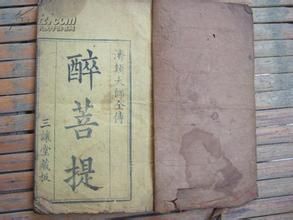 濟顛大師全傳
醉菩提
三讓堂藏板